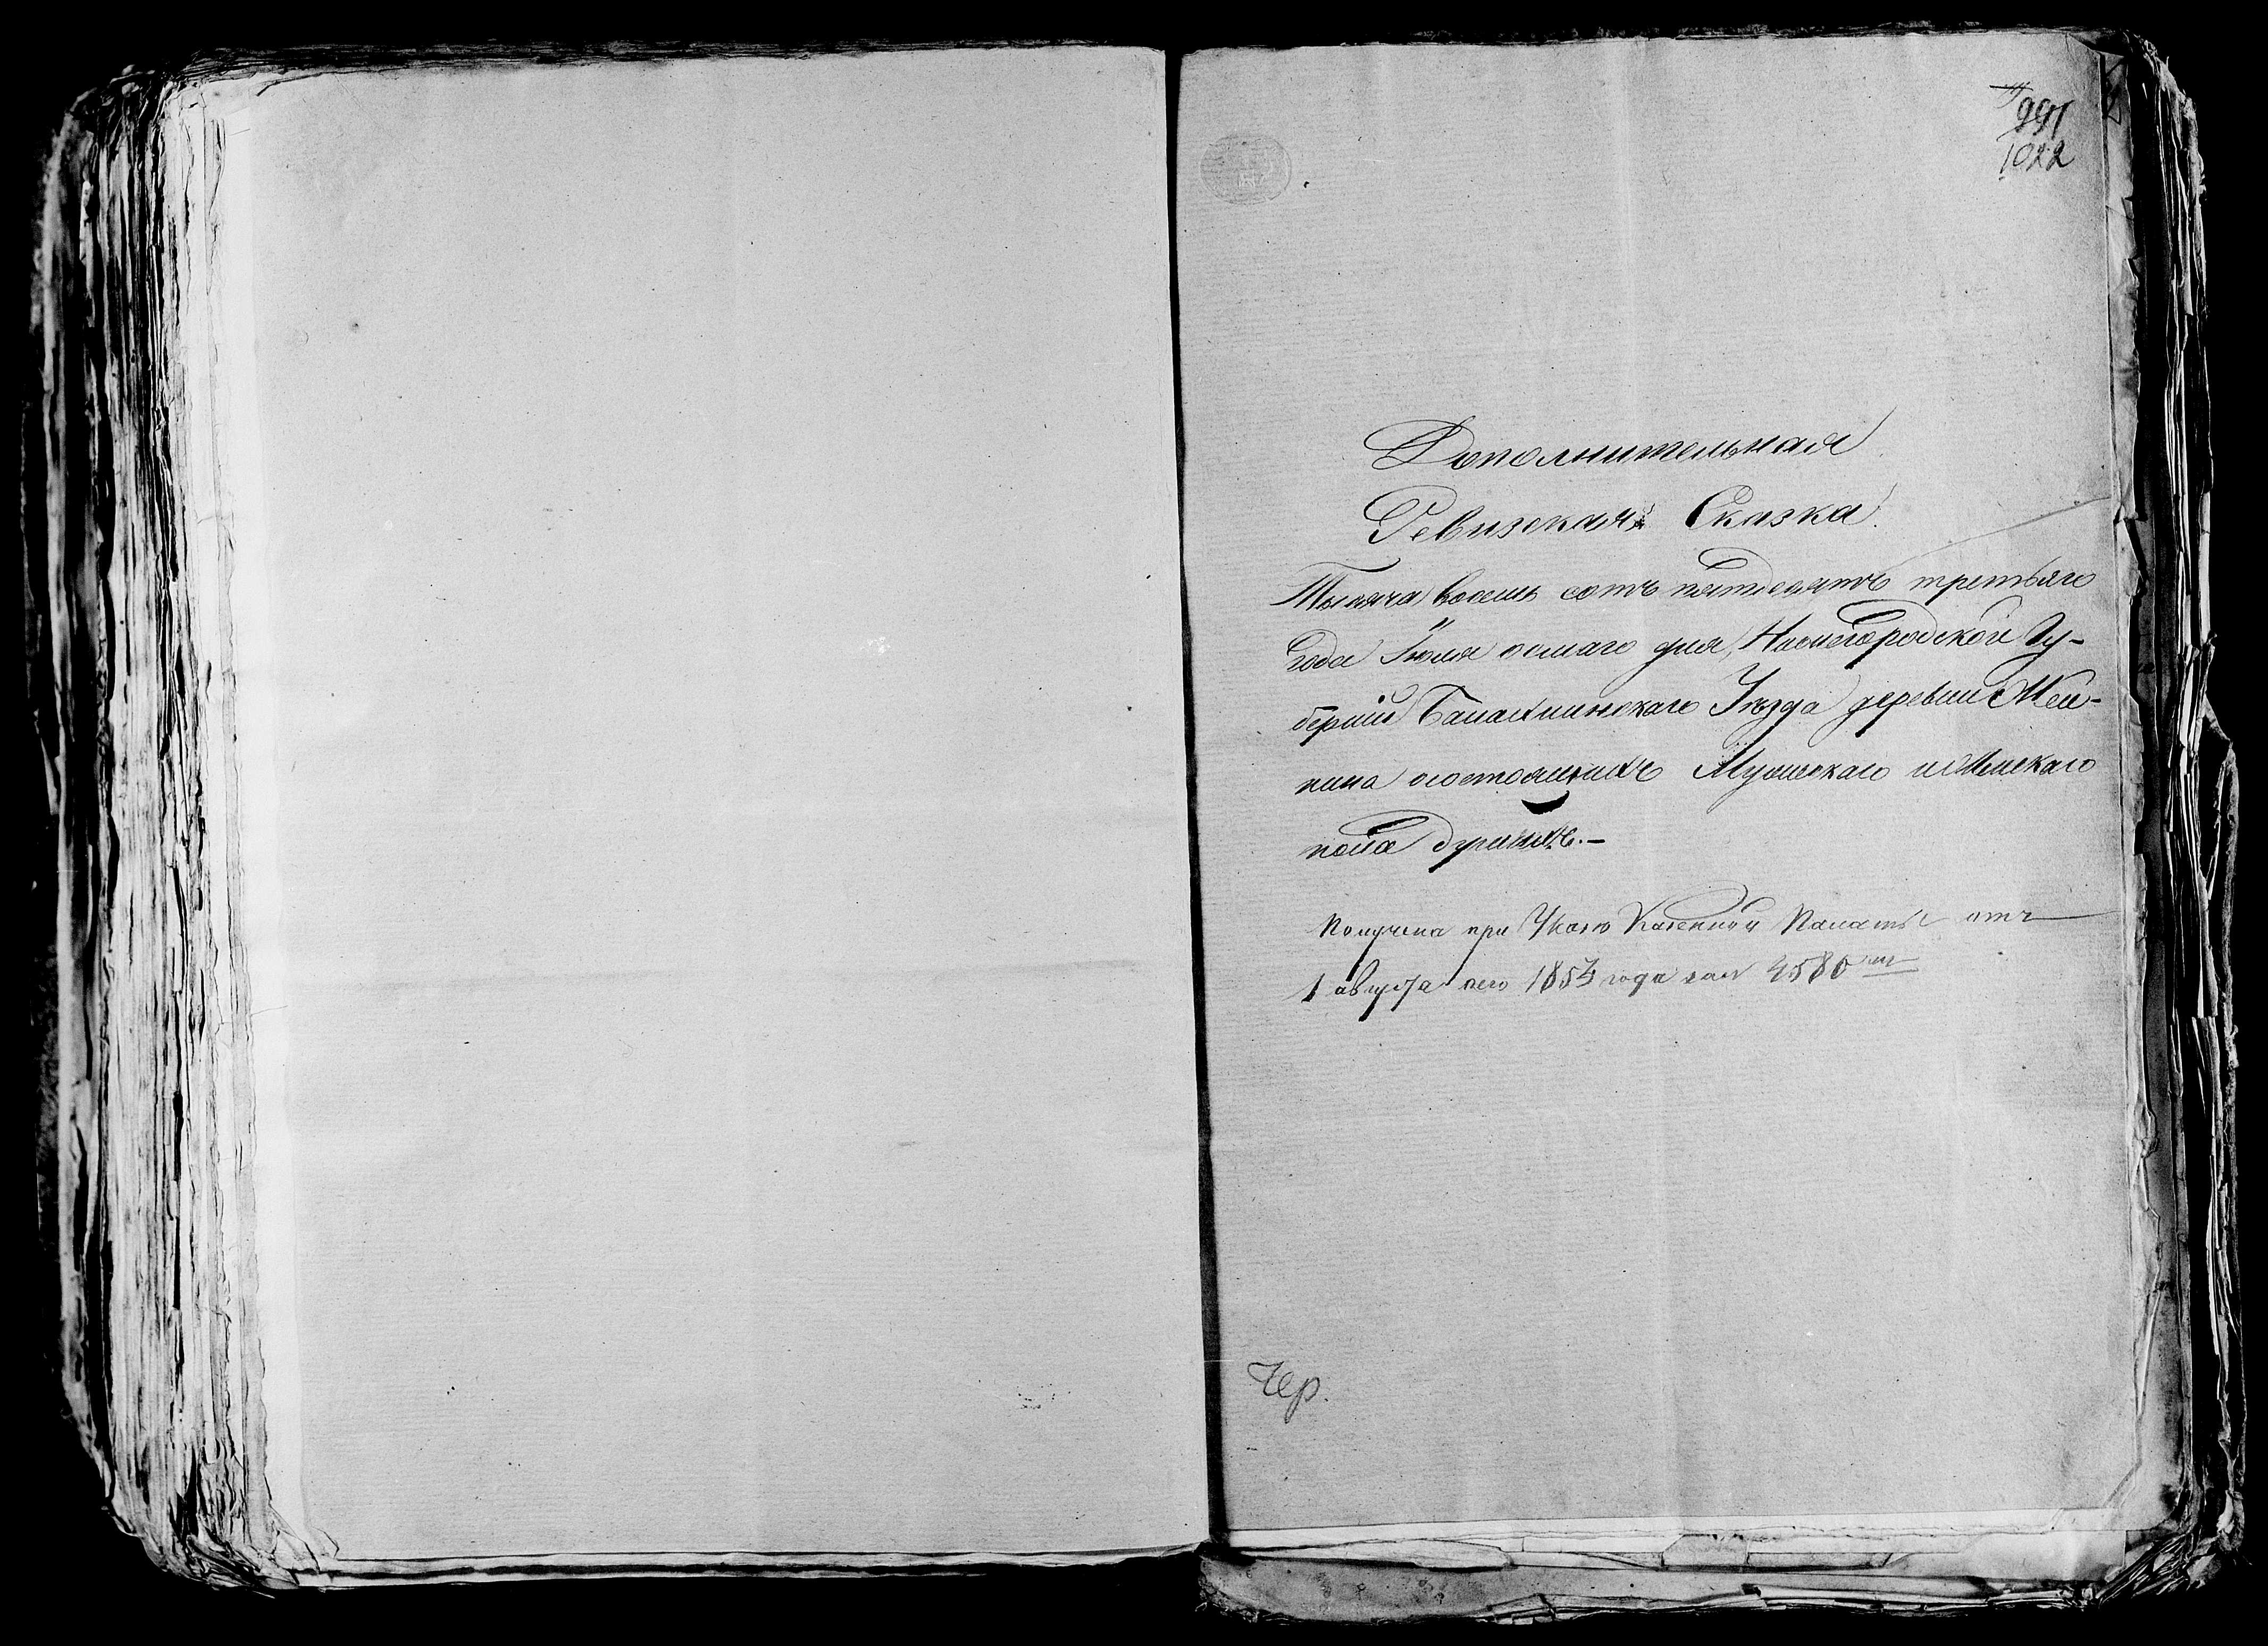 991
1022
Дополнительная
Ревизская Сказка
Тысяча восемь сотъ пятдесятъ третьяго
года Іюля осмаго дня, Нижегородской Гу-
берніи Балахнинскаго Уѣзда деревни
состоящихъ Мужескаго и Женскаго
пола душахъ.—
Получена при Указѣ Казенной Палаты отъ
1 августа сего 1853 года за № 4580
Чер.